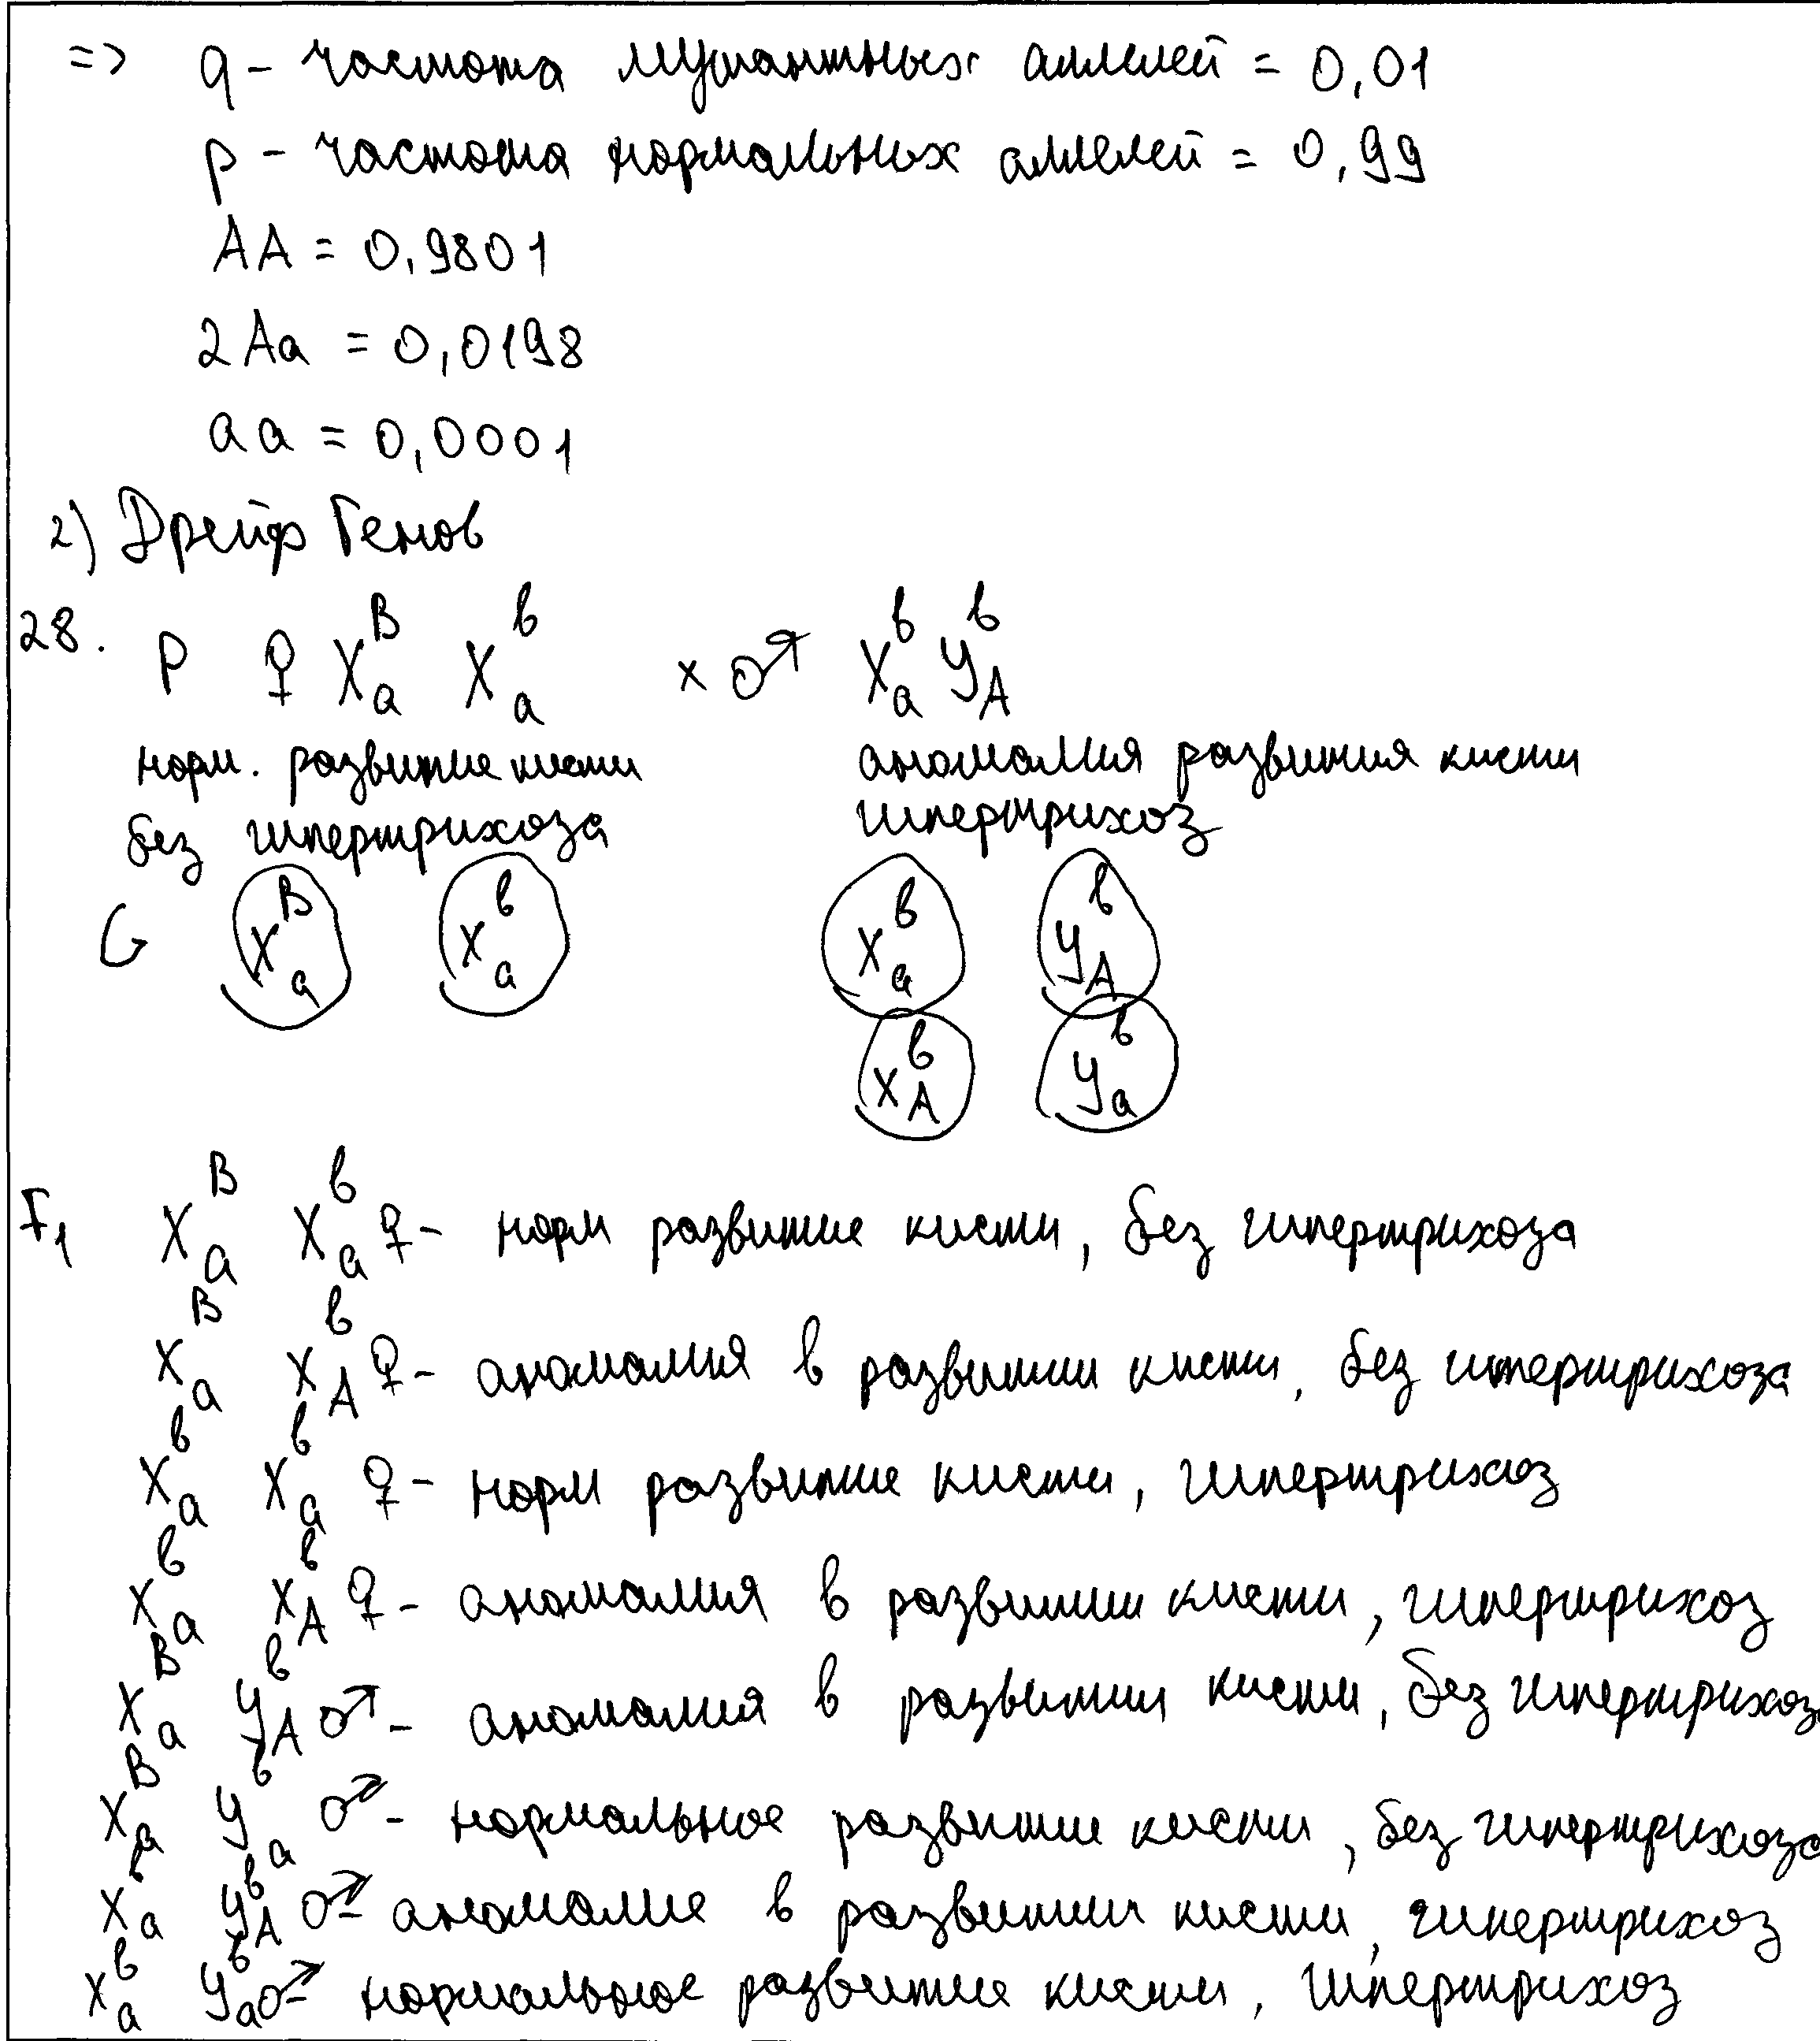 => q - частота мутантных аллелей = 0,01
p - частота нормальных аллелей = 0,99
AA = 0,9801
2Aa = 0,0198
aa = 0,0001
2) Дрейф Генов
28. P ♀ X^B_a X^b_a × ♂ X^b_a Y^b_A
норм. развитие кисти аномалия развития кисти
без гипертрихоза гипертрихоз
G X^B_a X^b_a X^b_a Y^b_A
X^b_A Y^b_a
F1 X^B_a X^b_a ♀ - норм развитие кисти, без гипертрихоза
X^B_a X^b_A ♀ - аномалия в развитии кисти, без гипертрихоза
X^b_a X^b_a ♀ - норм развитие кисти, гипертрихоз
X^b_a X^b_A ♀ - аномалия в развитии кисти, гипертрихоз
X^B_a Y^b_A ♂ - аномалия в развитии кисти, без гипертрихоза
X^B_a Y^b_a ♂ - нормальное развитие кисти, без гипертрихоза
X^b_a Y^b_A ♂ - аномалие в развитии кисти, гипертрихоз
X^b_a Y^b_a ♂ - нормальное развитие кисти, гипертрихоз